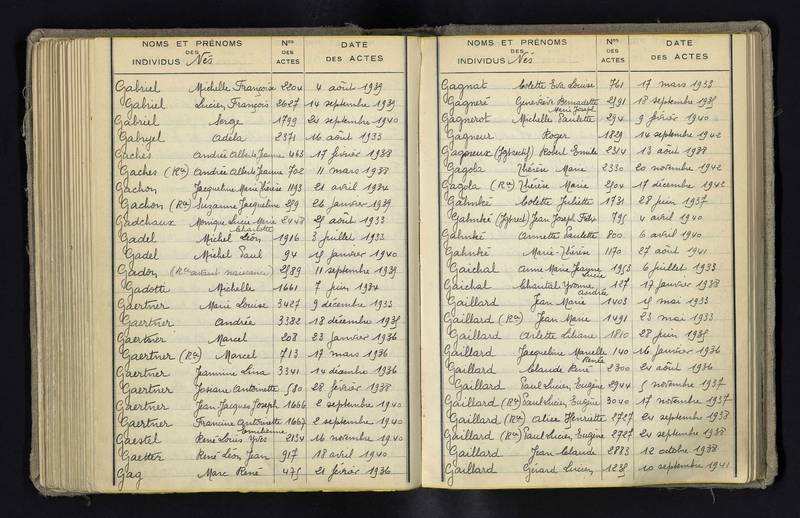 NOMS ET PRÉNOMS
DES
INDIVIDUS Nés
Nos
DES
ACTES
DATE
DES ACTES
Gabriel Michelle Françoise 2204 4 août 1939
Gabriel Lucien, François 2627 14 septembre 1939
Gabriel Serge 1799 24 septembre 1940
Gabryel Adèla 2371 16 août 1933
Gaches Andrée Alberte Jeanne 463 17 février 1938
Gaches (Ron) Andrée Alberte Jeanne 702 11 mars 1938
Gachon Jacqueline Marie Thérèse 1193 21 avril 1934
Gachon (Ron) Suzanne Jacqueline 26 janvier 1939
Gadchaux Monique Lucie Marie 2448 août 1933
Charlotte
Gadel Michel Léon 1916 3 juillet 1933
Gadel Michel Paul 94 janvier 1940
Gadon 11 septembre 1939
Gadotti Michelle 1661 7 juin 1934
Gaertner Marie Louise 3427 9 décembre 1933
Gaertner Andrée 3382 18 décembre 1935
Gaertner Marcel 208 23 janvier 1936
Gaertner (Ron) Marcel 713 17 mars 1936
Gaertner Jeannine Lina 3341 14 décembre 1936
Gaertner Josiane Antoinette 580 28 février 1938
Gaertner Jean Jacques Joseph 1666 2 septembre 1940
Gaertner Francine Antoinette 1667 2 septembre 1940
Emilienne
Gaestel René Louis Yves 2134 16 novembre 1940
Gaetter René Léon Jean 917 18 avril 1940
Gag Marc René 475 21 février 1936
NOMS ET PRÉNOMS
DES
INDIVIDUS Nés
Nos
DES
ACTES
DATE
DES ACTES
Gagnat Colette Eva Louise 761 17 mars 1933
Gagneré Geneviève Bernadette 2591 18 septembre 1935
Marie Joseph
Gagnerot Michelle Paulette 294 9 février 1940
Gagneur Roger 1829 14 septembre 1942
Gagneux Robert Emile 2314 13 août 1938
Gagola Thérèse Marie 2330 20 novembre 1942
Gagola (Ron) Thérèse Marie 2504 17 décembre 1942
Gahnké Colette Juliette 1731 28 juin 1937
Gahnké Jean Joseph Félix 795 4 avril 1940
Gahnké Annette Paulette 800 6 avril 1940
Gahnké Marie-Thérèse 1170 27 août 1941
Gaichal Anne Marie Jeanne 1953 6 juillet 1933
Lucie
Gaichal Chantal Yvonne 127 17 janvier 1938
Andrée
Gaillard Jean Marie 1403 15 mai 1933
Gaillard (Ron) Jean Marie 1491 23 mai 1933
Gaillard Arlette Liliane 1810 28 juin 1935
Gaillard Jacqueline Marcelle 140 16 janvier 1936
Renée
Gaillard Claude René 2300 24 août 1936
Gaillard Paul Lucien Eugène 2944 5 novembre 1937
Gaillard (Ron) Paul Lucien Eugène 3040 17 novembre 1937
Gaillard (Ron) Alice Henriette 2727 24 septembre 1938
Gaillard (Ron) Paul Lucien Eugène 2727 24 septembre 1938
Gaillard Jean Claude 2883 12 octobre 1938
Gaillard Gérard Lucien 1235 10 septembre 1941